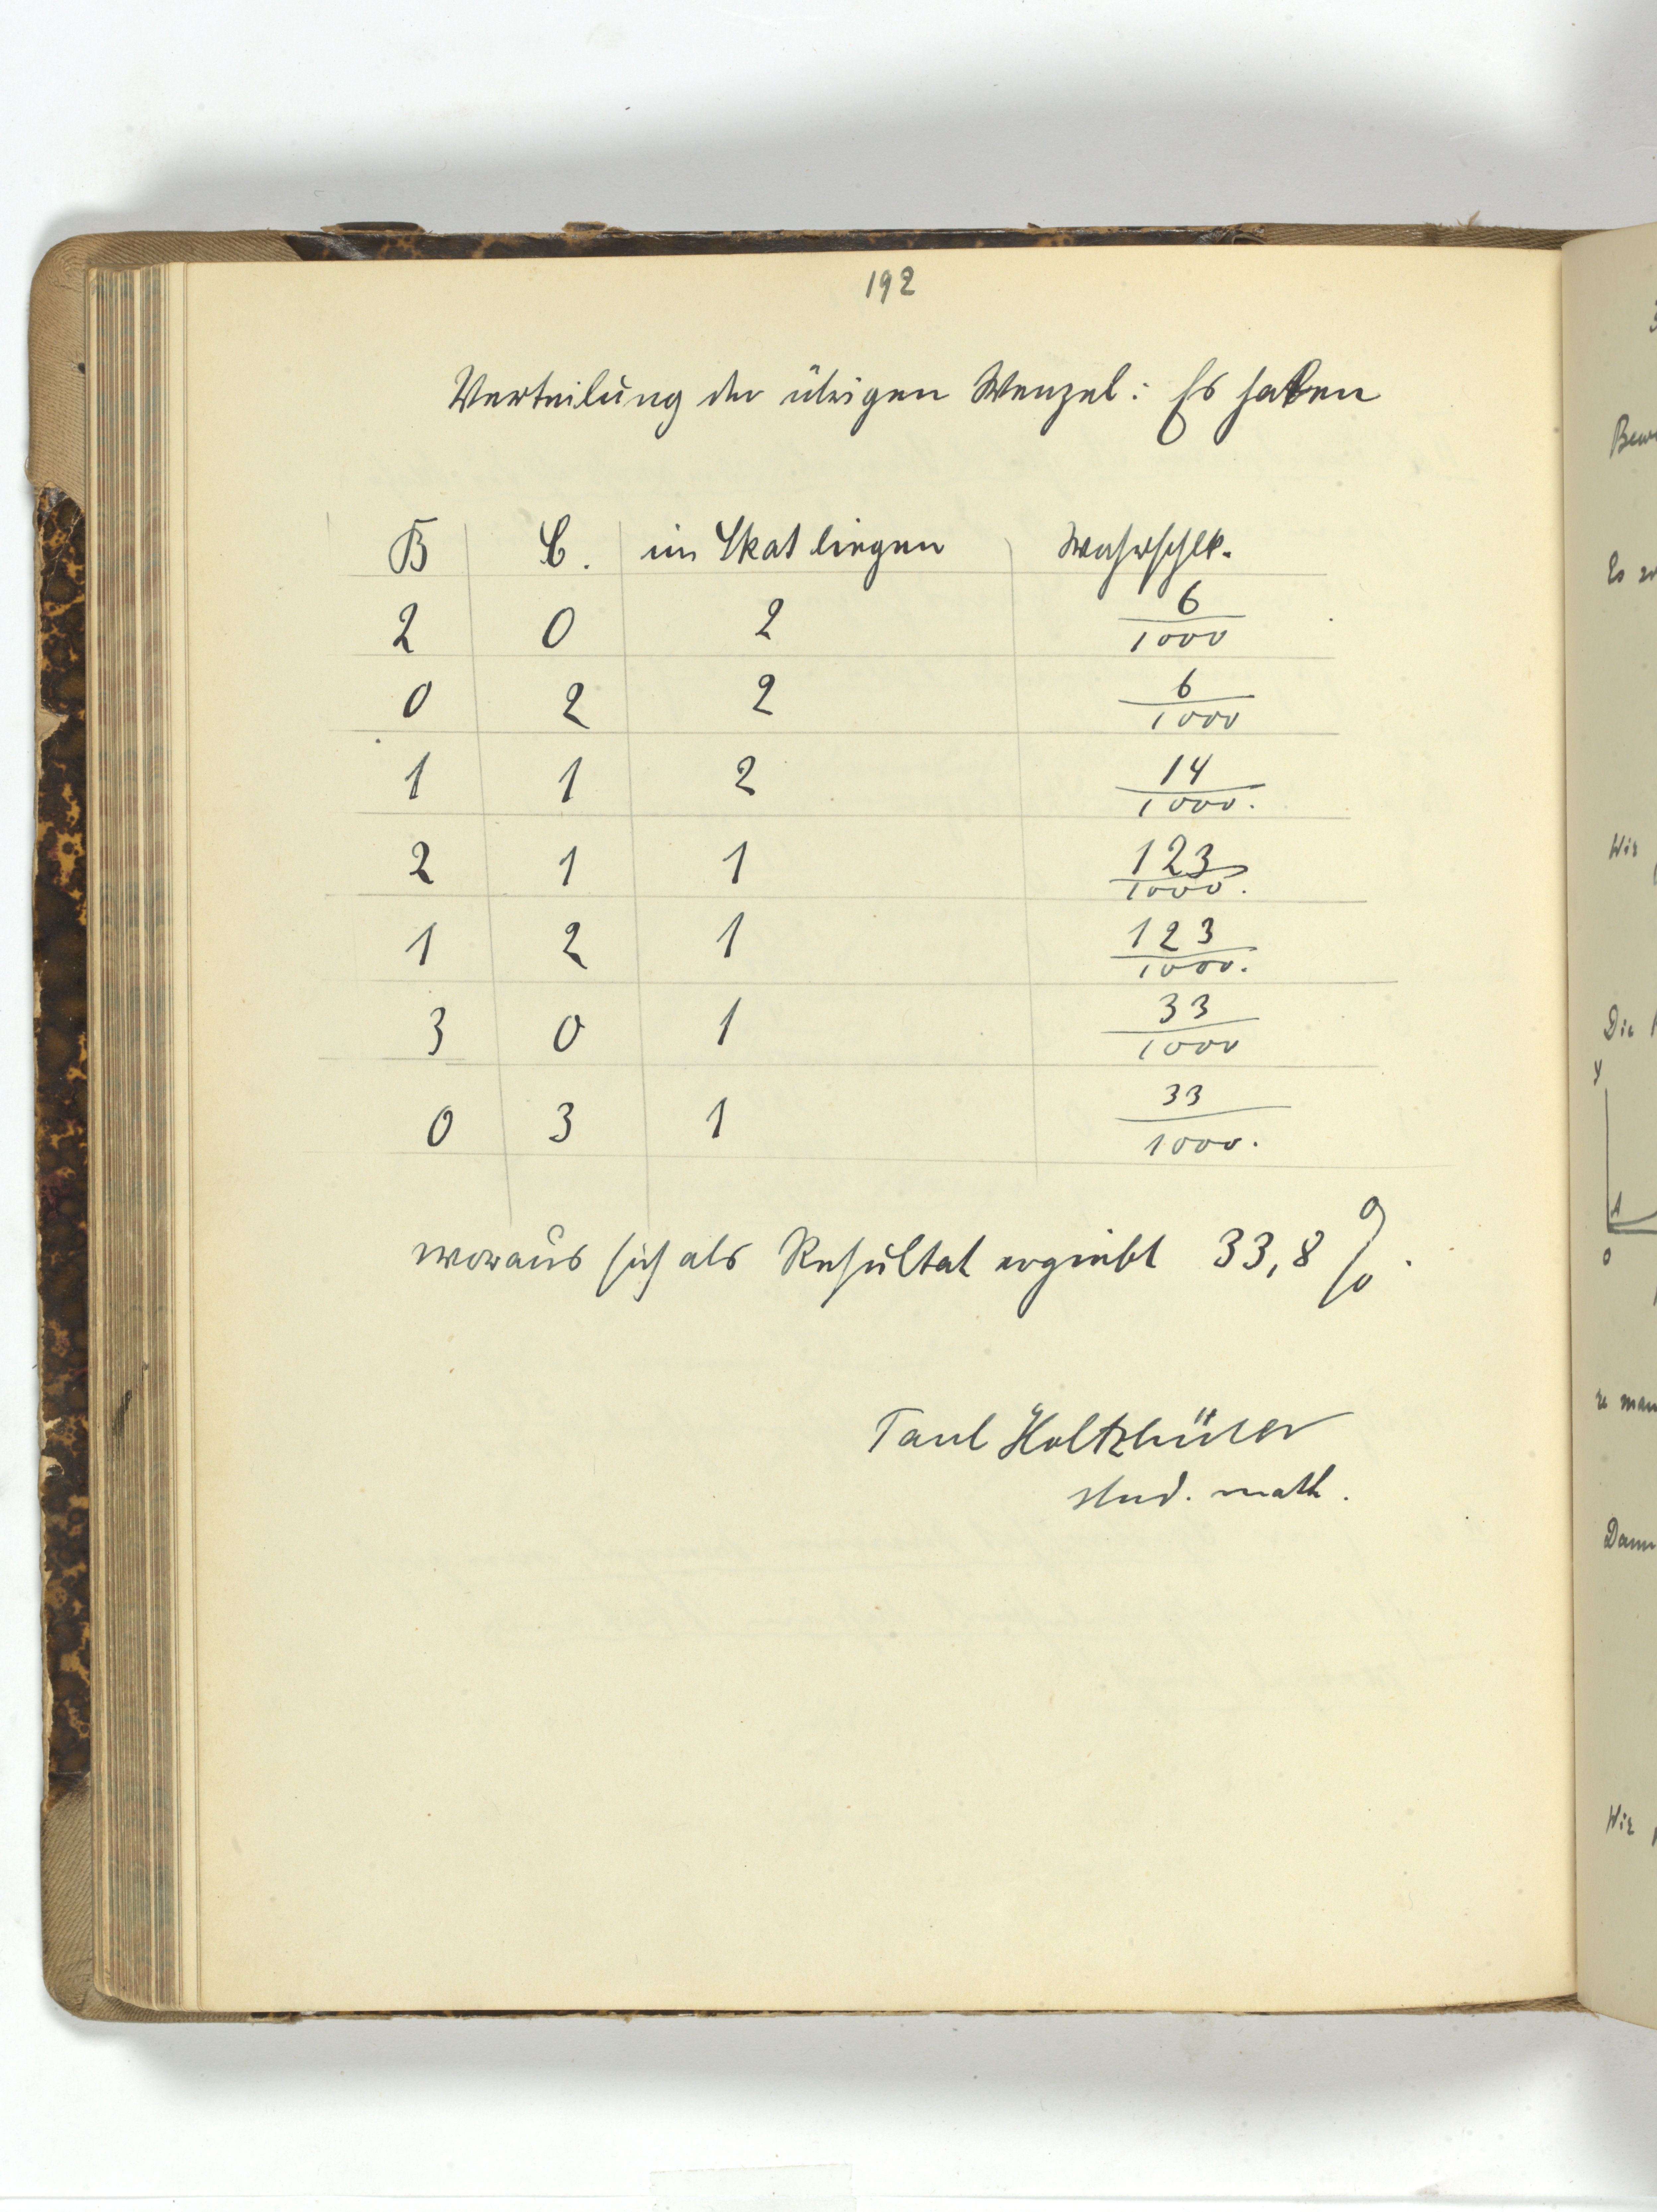 192
Verteilung der übrigen Wenzel: Es haben
B C. im Skat liegen Wahrschlk.
2 0 2 6/1000
0 2 2 6/1000
1 1 2 14/1000.
2 1 1 123/1000.
1 2 1 123/1000.
3 0 1 33/1000
0 3 1 33/1000.
woraus sich als Resultat ergiebt 33,8 %.
Paul Holtzhüter
stud. math.
Es
Wir
Die
y
A
0
Dann
Wir